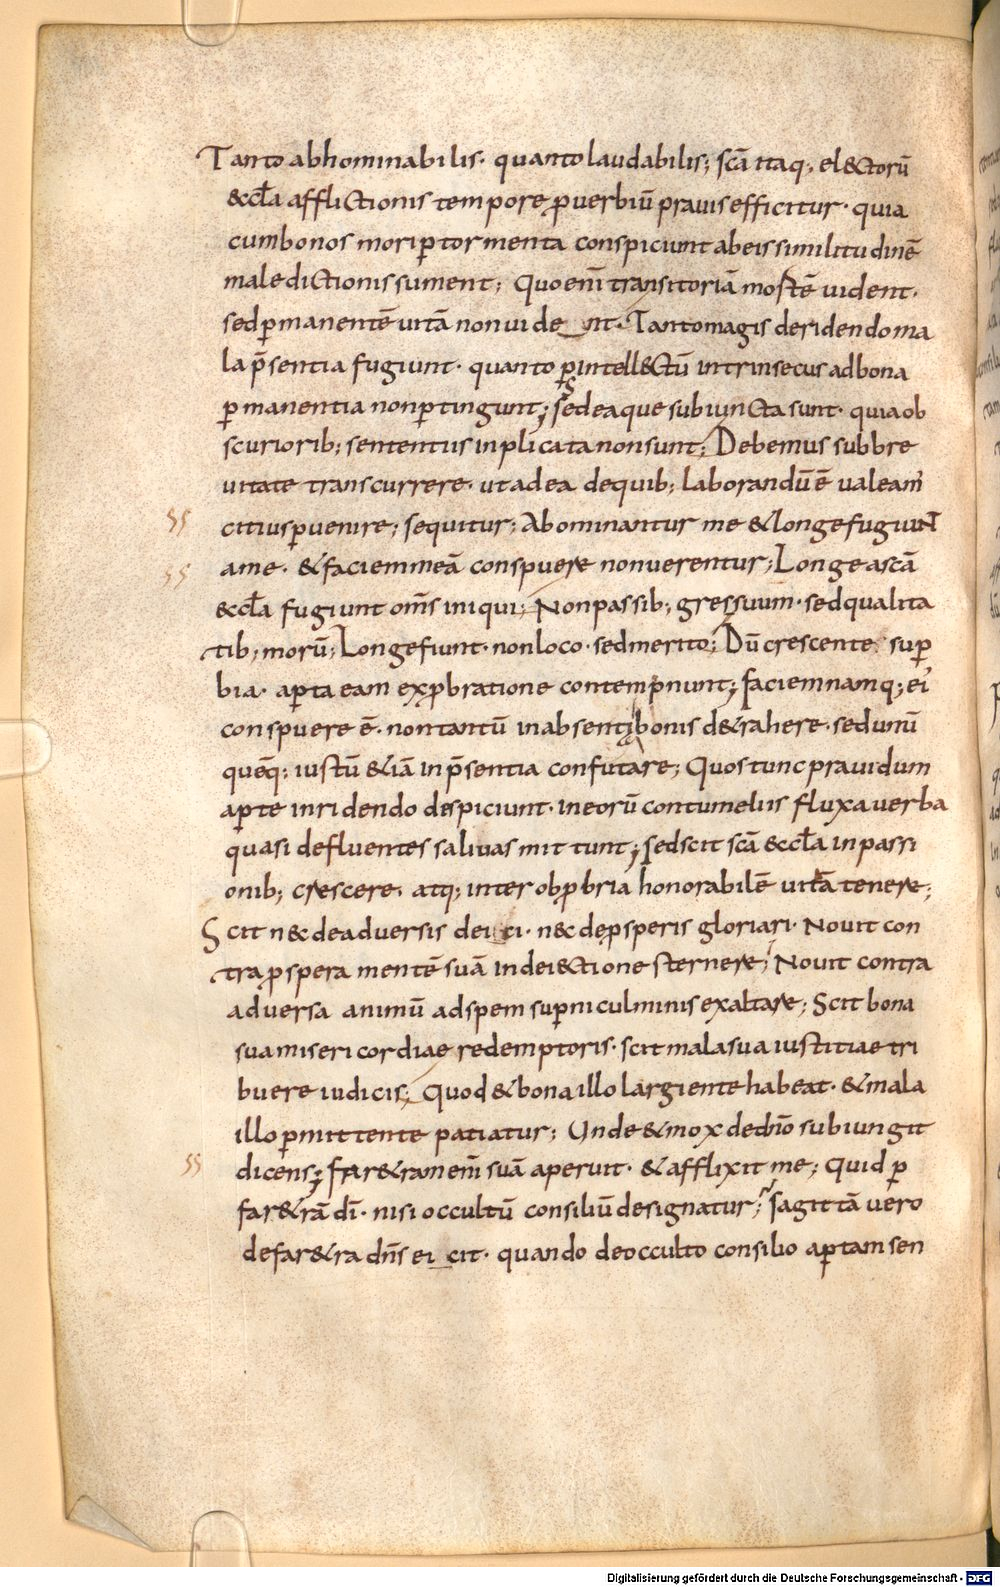 Tanto abhominabilis· quanto laudabilis; scā itaq; el&ctorū
&ccła afflictionis tempore ꝓuerbiū prauis efficitur· quia
cum bonos mori ꝑ tormenta conspiciunt ab eis similitudinē
maledictionis sument; Quo enī transitoriā mostē uident·
sed ꝑmanentē uitā non uide nt· Tanto magis deridendo ma
la p̄sentia fugiunt· quanto ꝑ intell&ctū intrinsecus ad bona
ꝑmanentia non ꝑtingunt; sed ea que subiuncta sunt· quia ob
scuriorib; sententiis inplicata non sunt; Debemus sub bre
uitate transcurrere· ut ad ea de quib; laborandū ē ualeam'
citius ꝑuenire; sequitur; Abominantur me & longe fugiunt
a me· & faciem meā conspuere non uerentur; Longe a scā
&ccła fugiunt om̄s iniqui; Non passib; gressuum· sed qualita
tib; morū; Longe fiunt· non loco· sed merito; Dū crescente suꝑ
bia· aꝑta eam exꝓbratione contempnunt; faciem namq; ei'
conspuere ē· non tantū in absentib; bonis d&rahere· sed unū
quēq; iustū &iā in p̄sentia confutare; Quos tunc praui dum
aꝑte inridendo despiciunt· in eorū contumeliis fluxa uerba
quasi defluentes saliuas mittunt; sed scit scā &ccła in passi
onib; crescere· atq; inter obꝓbria honorabilē uitā tenere;
Scit n&c de aduersis dei ci· n&c de ꝓsperis gloriari· Nouit con
tra ꝓspera mentē suā in dei&ctione sternere; Nouit contra
aduersa animū ad spem suꝑni culminis exaltare; Scit bona
sua misericordiae redemptoris· scit mala sua iustitiae tri
buere iudicis; Quod & bona illo largiente habeat· & mala
illo ꝑmittente patiatur; Unde & mox de dn̄o subiungit
dicens; far&ram enī suā aperuit· & afflixit me; Quid ꝑ
far&rā dī· nisi occultū consiliū designatur; sagittā uero
de far&ra dn̄s ei cit· quando de occulto consilio aꝑtam sen
Digitalisierung gefördert durch die Deutsche Forschungsgemeinschaft - DFG